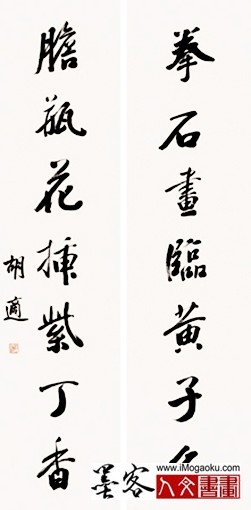 拳石畫臨黃子久
膽瓶花插紫丁香
胡適
墨客
www.iMogaoku.com
人文書畫